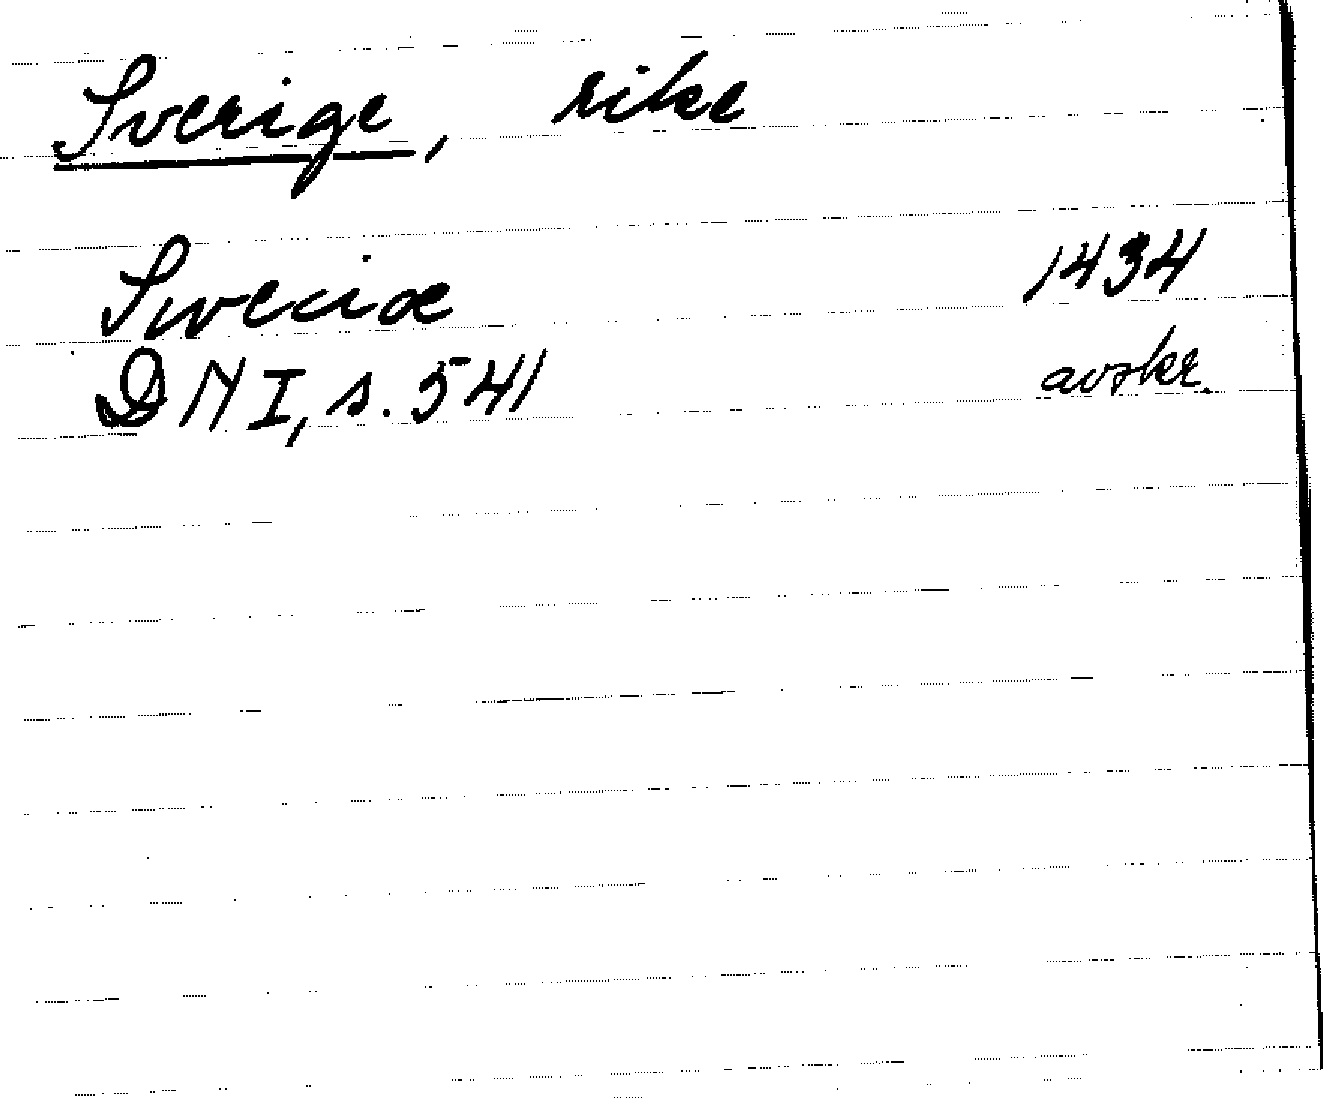 Sverige, rike
Sweciæ 1434
DN I, s. 541 avskr.